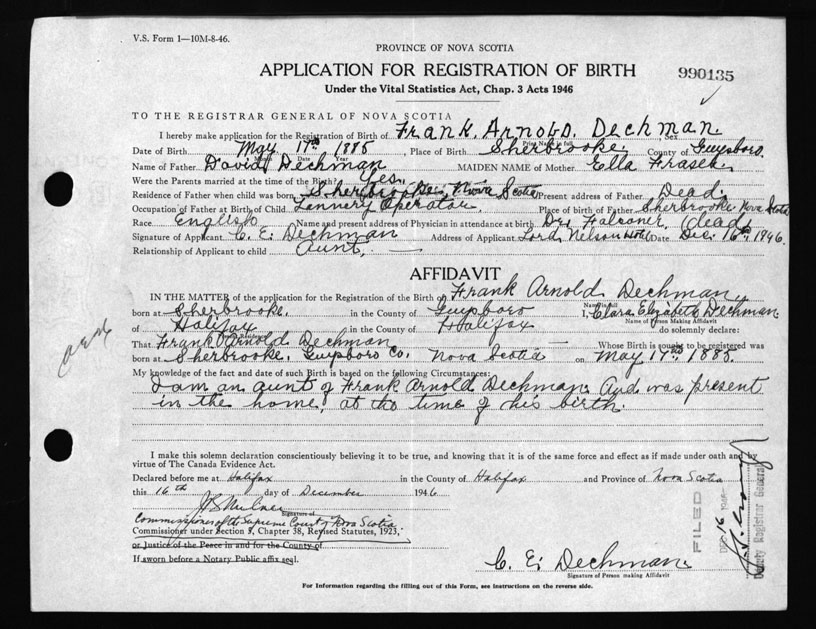 V.S. Form 1—10M-8-46.
PROVINCE OF NOVA SCOTIA
APPLICATION FOR REGISTRATION OF BIRTH
990135
Under the Vital Statistics Act, Chap. 3 Acts 1946
TO THE REGISTRAR GENERAL OF NOVA SCOTIA
I hereby make application for the Registration of Birth of Frank. Arnold. Dechman.
Print Name in full Sex
Date of Birth May 17th 1885 , Place of Birth Sherbrooke. County of Guysboro.
Month Day Year
Name of Father David Dechman MAIDEN NAME of Mother Ella Fraser.
Were the Parents married at the time of Birth? Yes.
Residence of Father when child was born Sherbrooke, Nova Scotia Present address of Father Dead.
Occupation of Father at Birth of Child Operator. Place of birth of Father Sherbrooke Nova Scotia
Race English Name and present address of Physician in attendance at birth Dr. Falconer (dead)
Signature of Applicant C. E. Dechman Address of Applicant Lord Nelson Hotel Date Dec. 16th, 1946.
Relationship of Applicant to child aunt, —
AFFIDAVIT
IN THE MATTER of the application for the Registration of the Birth of Frank Arnold Dechman,
born at Sherbrooke. in the County of Guysboro I, Clara Elizabeth Dechman
Name in full
Name of Person Making Affidavit
of Halifax in the County of Halifax do solemnly declare:
That Frank Arnold Dechman — Whose Birth is sought to be registered was
born at Sherbrooke, Guysboro Co. Nova Scotia on May 17th 1885.
My knowledge of the fact and date of such Birth is based on the following Circumstances:
I am an aunt of Frank Arnold Dechman. And was present
in the home, at the time of his birth.
I make this solemn declaration conscientiously believing it to be true, and knowing that it is of the same force and effect as if made under oath and by
virtue of The Canada Evidence Act.
Declared before me at Halifax in the County of Halifax and Province of Nova Scotia
this 16th day of December 1946
Signature of
Commissioner of the Supreme Court of Nova Scotia
Commissioner under Section 8, Chapter 38, Revised Statutes, 1923,
or Justice of the Peace in and for the County of
If sworn before a Notary Public affix seal.
C. E. Dechman.
Signature of Person making Affidavit
FILED
DEC 16 1946
Deputy Registrar General
For Information regarding the filling out of this Form, see instructions on the reverse side.